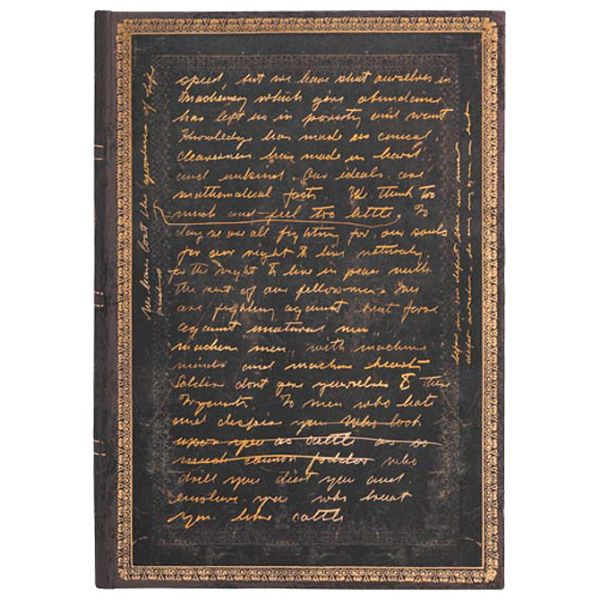 We have lost the of life
speed, but we have shut ourselves in
Machinery which gives abundance
has left us in poverty and want
Knowledge has made us cynical
cleverness has made us hard
and unkind. Our ideals are
mathematical facts. We think too
much and feel too little. To
day we are all fighting for our souls
for our right to live naturally
for the right to live in peace with
the rest of our fellowmen. We
are fighting against brut force
against unatural men
machine men, with machine
minds and machine hearts
Soldiers dont give yourselves to these
Tryants. To men who hate
and despise you Who look
upon you as cattle as so
much cannon fodder who
drill you diet you and
enslave you who treat
you like cattle